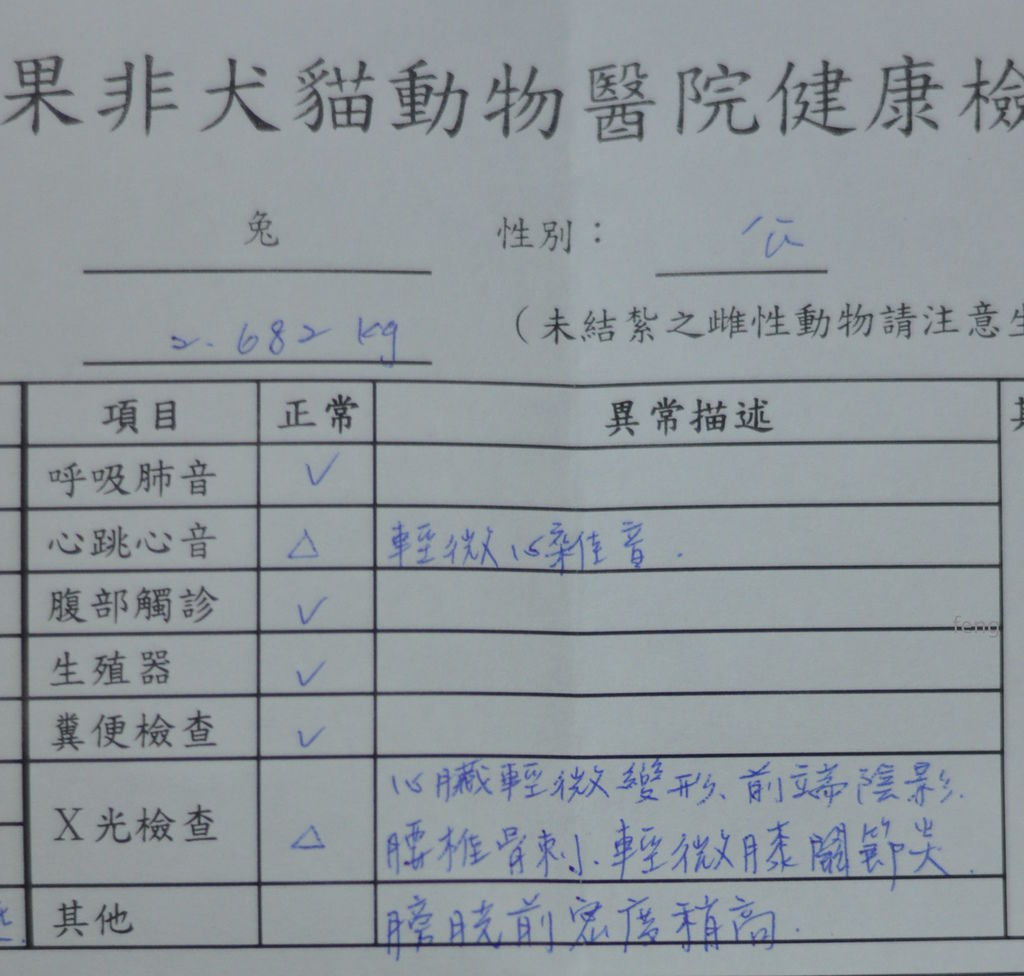 果非犬貓動物醫院健康檢
兔 性別： 公
2.682 kg （未結紮之雌性動物請注意生
項目 正常 異常描述
呼吸肺音 ✓
心跳心音 △ 輕微心雜音.
腹部觸診 ✓
feng
生殖器 ✓
糞便檢查 ✓
X光檢查 △ 心臟輕微變形、前端陰影.
腰椎骨刺、輕微膝關節炎.
其他 膀胱前密度稍高.